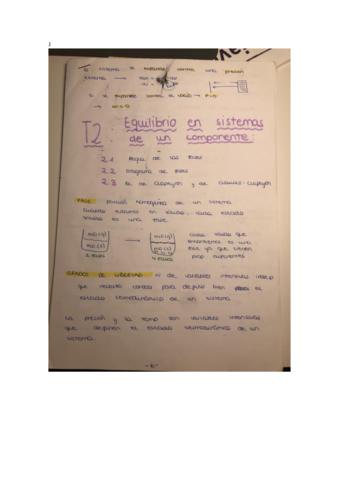 El sistema se expande contra una presión
externa →
Si se expande contra el vacío → P=0
→ w=0
T2: Equilibrio en sistemas
de un componente:
2.1 Regla de las fases
2.2 Diagrama de fases
2.3 Ec de Clapeyron y de Clausius-Clapeyron
FASE: porción homogénea de un sistema
Cuando estamos en sólido, cada
sólido es una fase.
H2O (g)
H2O (l)
2 fases
→
4 fases
cada sólido que
es una
fase ya que tienen
prop diferentes
GRADOS DE LIBERTAD: Nº de variables intensivas indep
que necesito conocer para definir bien el
estado termodinámico de un sistema
La presión y la temp son variables intensivas
que definen el estado termodinámico de un
sistema.
-6-